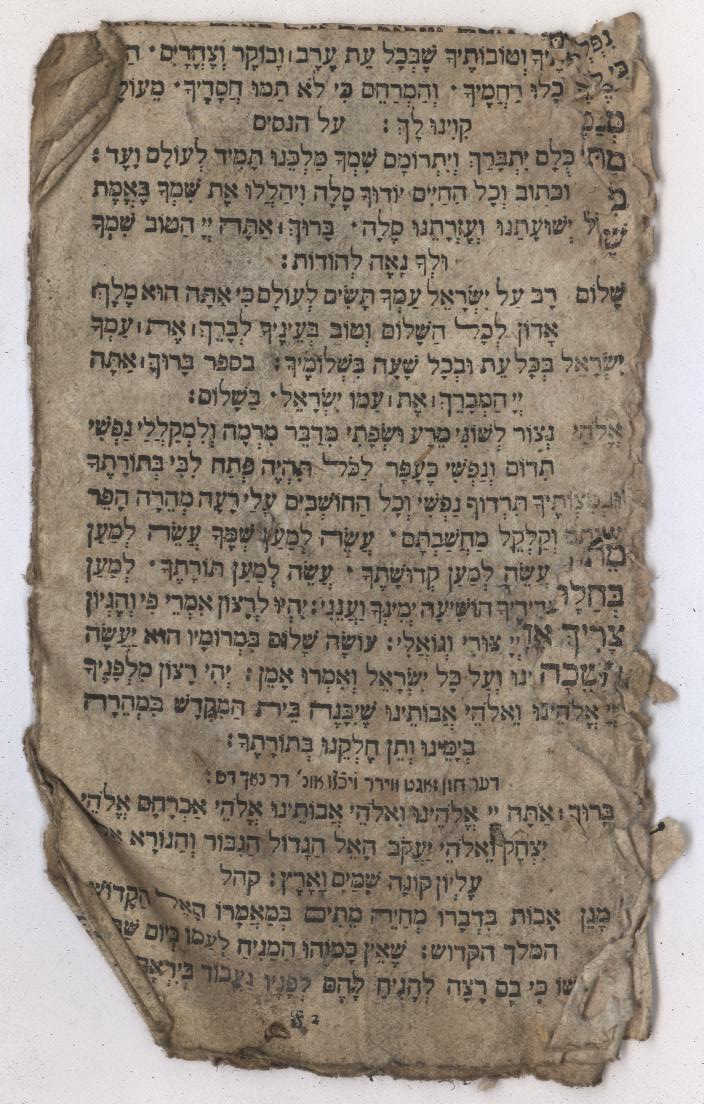 וְטוֹבוֹתֶיךָ שֶׁבְּכָל עֵת עֶרֶב וָבוֹקֶר וְצָהֳרָיִם׃
כָלוּ רַחֲמֶיךָ׃ וְהַמְרַחֵם כִּי לֹא תַמּוּ חֲסָדֶיךָ׃ מֵעוֹלָ
קִוִּינוּ לָךְ׃ על הנסים
כֻּלָּם יִתְבָּרַךְ וְיִתְרוֹמַם שִׁמְךָ מַלְכֵּנוּ תָּמִיד לְעוֹלָם וָעֶד׃
וכתוב וְכָל הַחַיִּים יוֹדוּךָ סֶלָה וִיהַלְלוּ אֶת שִׁמְךָ בֶּאֱמֶת
יְשׁוּעָתֵנוּ וְעֶזְרָתֵנוּ סֶלָה׃ בָּרוּךְ אַתָּה יְיָ הַטּוֹב שִׁמְךָ
וּלְךָ נָאֶה לְהוֹדוֹת׃
שָׁלוֹם רָב עַל יִשְׂרָאֵל עַמְּךָ תָּשִׂים לְעוֹלָם כִּי אַתָּה הוּא מֶלֶךְ
אָדוֹן לְכָל הַשָּׁלוֹם וְטוֹב בְּעֵינֶיךָ לְבָרֵךְ אֶת עַמְּךָ
יִשְׂרָאֵל בְּכָל עֵת וּבְכָל שָׁעָה בִּשְׁלוֹמֶיךָ׃ בספר בָּרוּךְ אַתָּה
יְיָ הַמְבָרֵךְ אֶת עַמּוֹ יִשְׂרָאֵל׃ בַּשָּׁלוֹם׃
אֱלֹהַי נְצוֹר לְשׁוֹנִי מֵרָע וּשְׂפָתַי מִדַּבֵּר מִרְמָה וְלִמְקַלְלַי נַפְשִׁי
תִדּוֹם וְנַפְשִׁי כֶּעָפָר לַכֹּל תִּהְיֶה פְּתַח לִבִּי בְּתוֹרָתֶךָ
תִּרְדּוֹף נַפְשִׁי וְכָל הַחוֹשְׁבִים עָלַי רָעָה מְהֵרָה הָפֵר
וְקַלְקֵל מַחֲשַׁבְתָּם׃ עֲשֵׂה לְמַעַן שְׁמֶךָ עֲשֵׂה לְמַעַן
עֲשֵׂה לְמַעַן קְדוּשָׁתֶךָ׃ עֲשֵׂה לְמַעַן תּוֹרָתֶךָ׃ לְמַעַן
הוֹשִׁיעָה יְמִינְךָ וַעֲנֵנִי׃ יִהְיוּ לְרָצוֹן אִמְרֵי פִי וְהֶגְיוֹן
יְיָ צוּרִי וְגוֹאֲלִי׃ עוֹשֶׂה שָׁלוֹם בִּמְרוֹמָיו הוּא יַעֲשֶׂה
וְעַל כָּל יִשְׂרָאֵל וְאִמְרוּ אָמֵן׃ יְהִי רָצוֹן מִלְּפָנֶיךָ
יְיָ אֱלֹהֵינוּ וֵאלֹהֵי אֲבוֹתֵינוּ שֶׁיִּבָּנֶה בֵּית הַמִּקְדָּשׁ בִּמְהֵרָה
בְיָמֵינוּ וְתֵן חֶלְקֵנוּ בְּתוֹרָתֶךָ׃
דער חזן זאגט ווידר ויכלו אונ׳ דר נאך דש׃
בָּרוּךְ אַתָּה יְיָ אֱלֹהֵינוּ וֵאלֹהֵי אֲבוֹתֵינוּ אֱלֹהֵי אַבְרָהָם אֱלֹהֵי
יִצְחָק וֵאלֹהֵי יַעֲקֹב הָאֵל הַגָּדוֹל הַגִּבּוֹר וְהַנּוֹרָא
עֶלְיוֹן קוֹנֶה שָׁמַיִם וָאָרֶץ׃ קהל
מָגֵן אָבוֹת בִּדְבָרוֹ מְחַיֵּה מֵתִים בְּמַאֲמָרוֹ הָאֵל הַקָּדוֹשׁ
המלך הקדוש׃ שֶׁאֵין כָּמוֹהוּ הַמֵּנִיחַ לְעַמּוֹ בְּיוֹם
כִּי בָם רָצָה לְהָנִיחַ לָהֶם לְפָנָיו נַעֲבוֹד בְּיִרְאָה